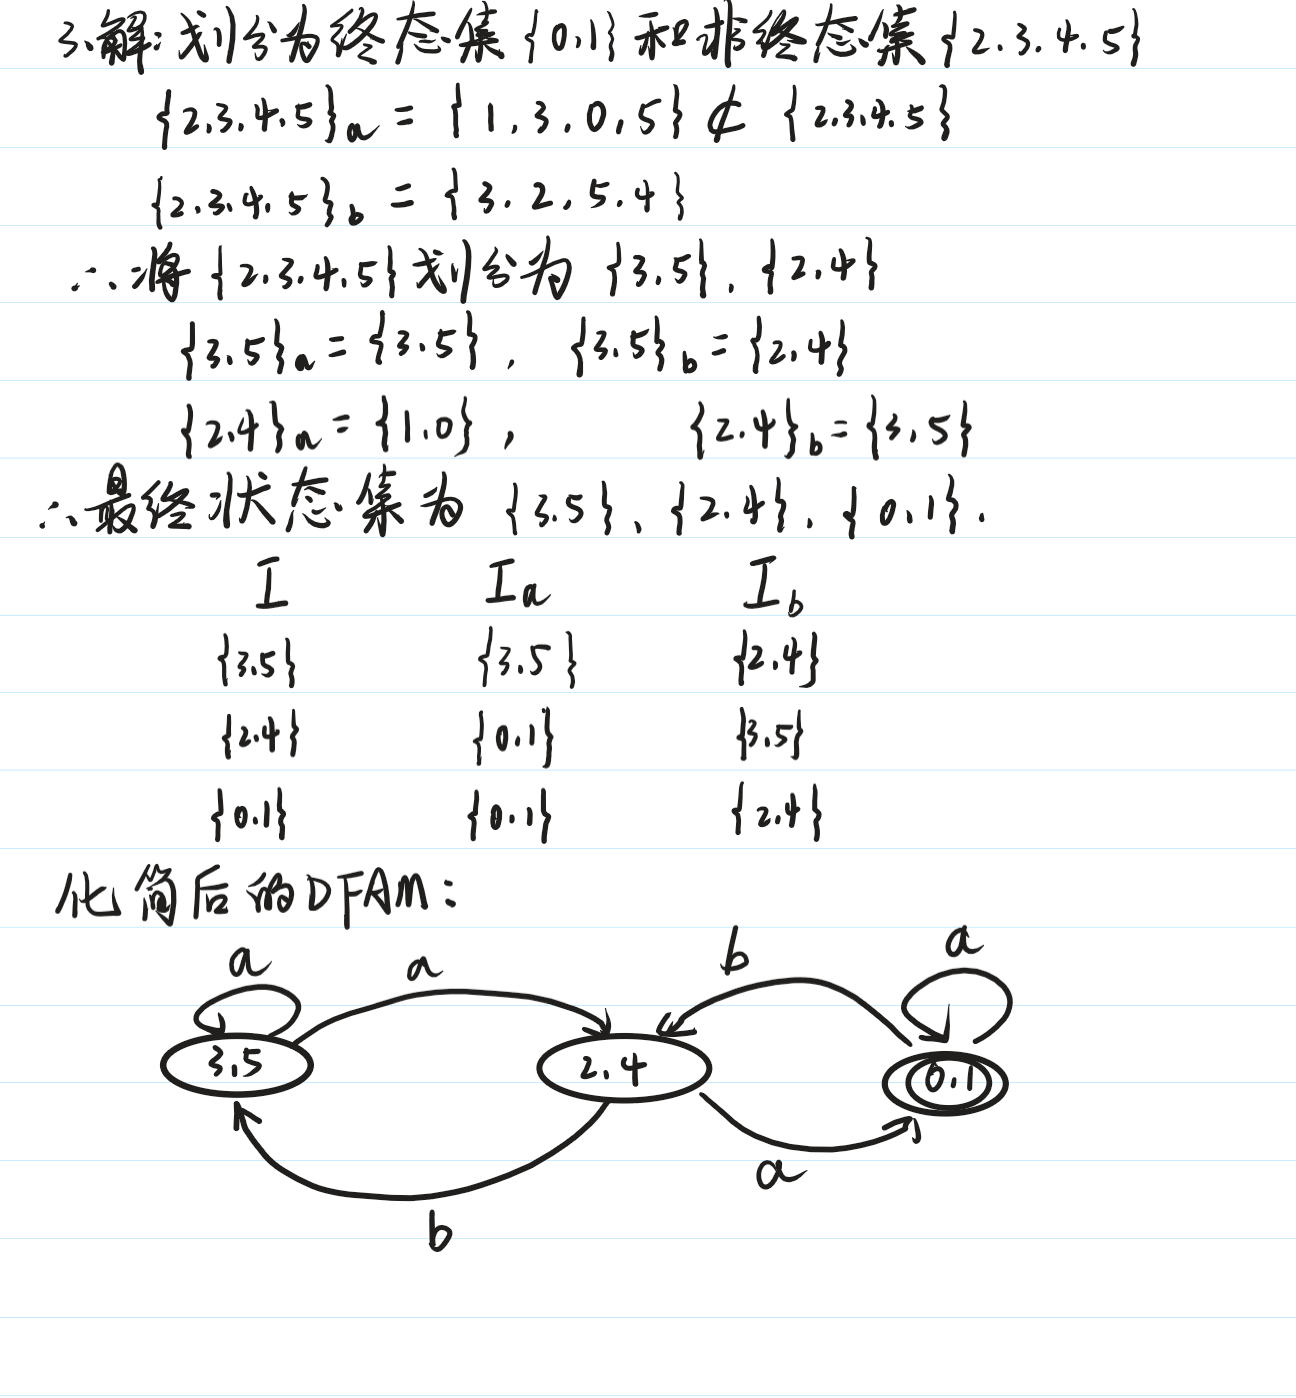 3.解:划分为终态集{0,1}和非终态集{2.3.4.5}
{2.3.4.5}a = {1,3,0,5} ⊄ {2.3.4.5}
{2.3.4.5}b = {3.2,5.4}
∴将{2.3.4.5}划分为{3.5},{2.4}
{3.5}a = {3.5}, {3.5}b = {2.4}
{2.4}a = {1.0}, {2.4}b = {3.5}
∴最终状态集为{3.5}、{2.4},{0.1}.
I Ia Ib
{3.5} {3.5} {2.4}
{2.4} {0.1} {3.5}
{0.1} {0.1} {2.4}
化简后的DFAM:
a a b a
3.5 2.4 0.1
a
b